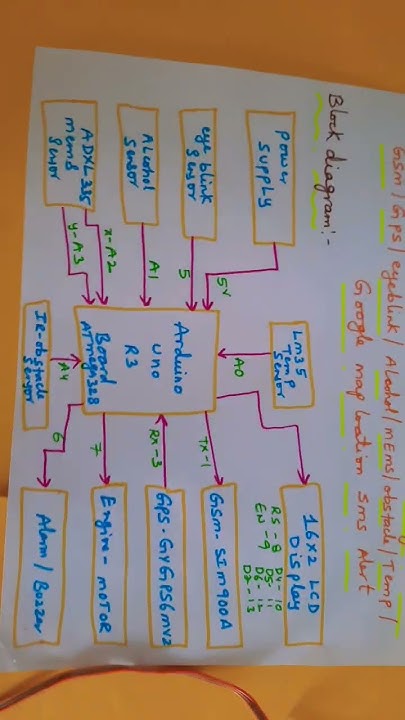 Gsm/Gps/eyeblink/Alcohol/mEms/obstacle/Temp/
Google map location Sms Alert
Block diagram:-
Power
Supply
5V
eye blink
Sensor
5
Alcohol
Sensor
A1
ADXL335
mems
Sensor
x-A2
y-A3
Lm35
Temp
Sensor
A0
Arduino
uno
R3
Board
ATmega328
IR-obstacle
Sensor
A4
16x2 LCD
Display
RS-8 D4-10
EN-9 D5-11
D6-12
D7-13
Tx-1
Gsm-SIm900A
Rx-3
GPS-GYGPS6mv2
7
Engine-moTOR
6
Alarm/Buzzer